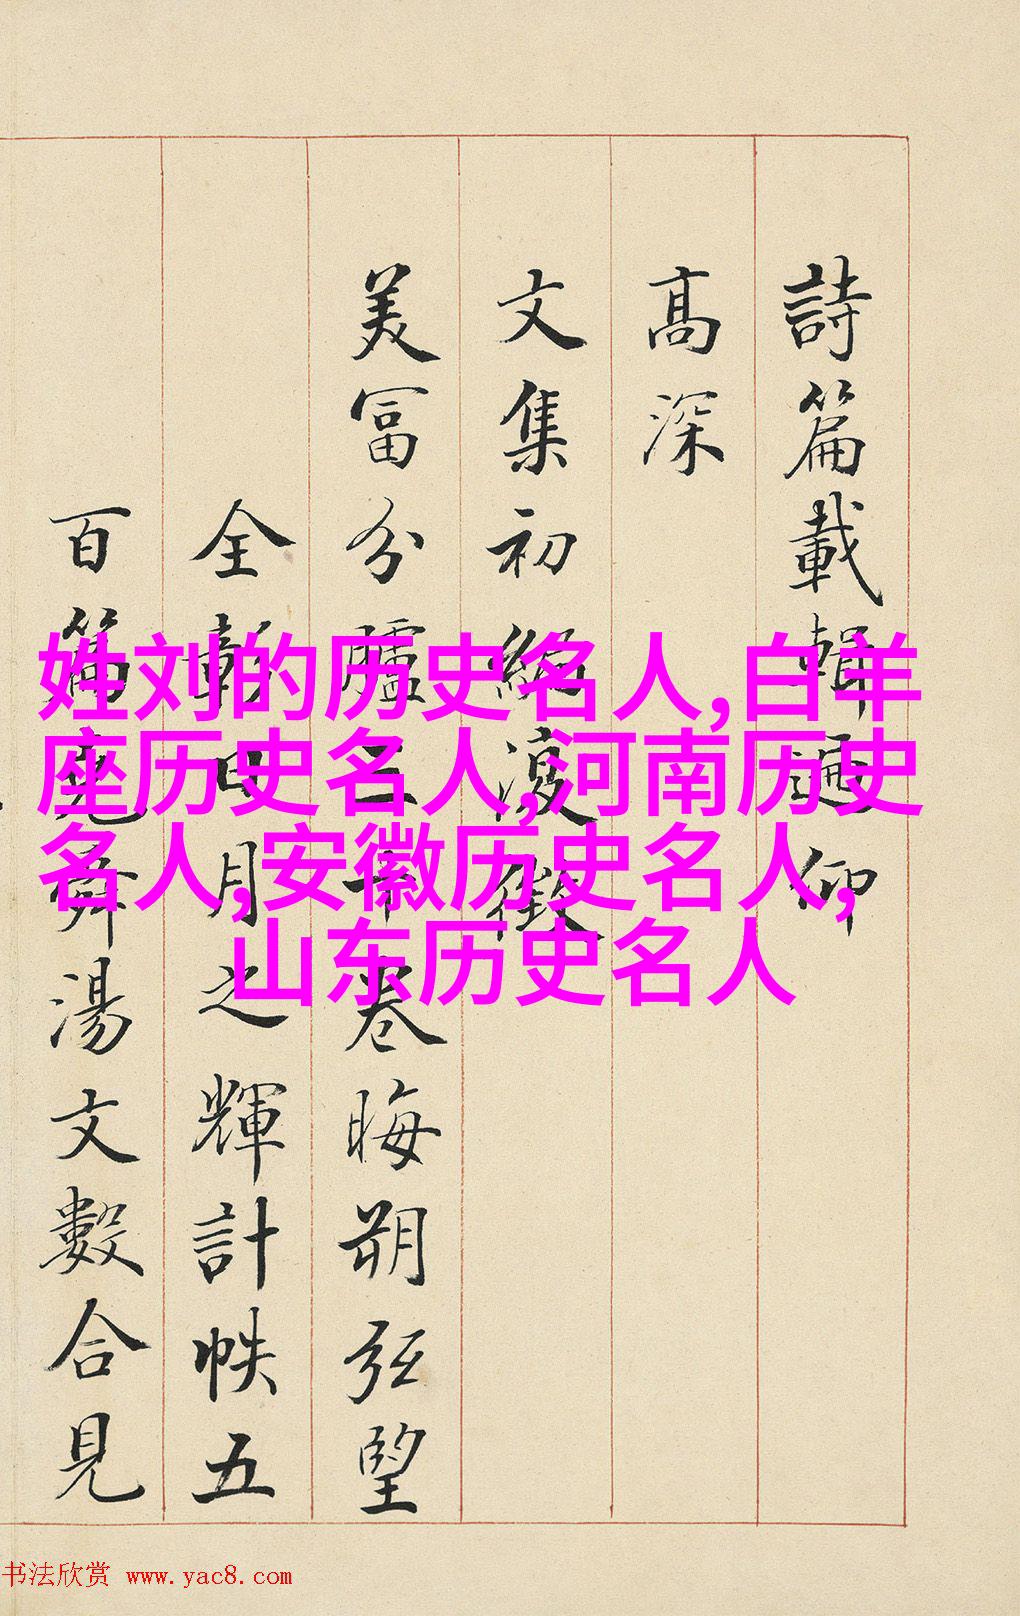 詩篇載輯遍仰
高深
文集初編復徵
美富分臚三十卷晦朔弦望
全彰日月之輝計帙五
百篇堯舜湯文數合見
姓刘的历史名人,白羊
座历史名人,河南历史
名人,安徽历史名人,
山东历史名人
书法欣赏 www.yac8.com